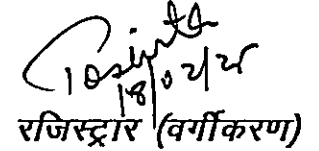 18/02/25
रजिस्ट्रार (वर्गीकरण)